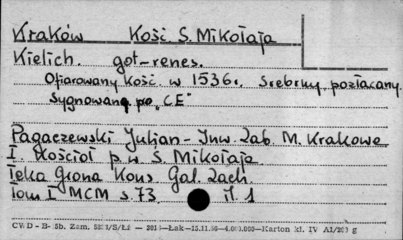 Kraków Kość S. Mikołaja
Kielich. got-renes.
Ofiarowany kość. w 1536r. Srebrny, pozłacany.
Sygnowany po „CE"
Pagaczewski Juljan - Inw. Zab. M. Krakowa
I. Kościoł p.w. S. Mikołaja
Teka Grona Kons Gal. Zach.
tom I MCM s. 73 il. 1
CWD - B- Zam. /S/Łi — Łok—15.11.56—4.000.000—Karton kl. IV A1/2 g